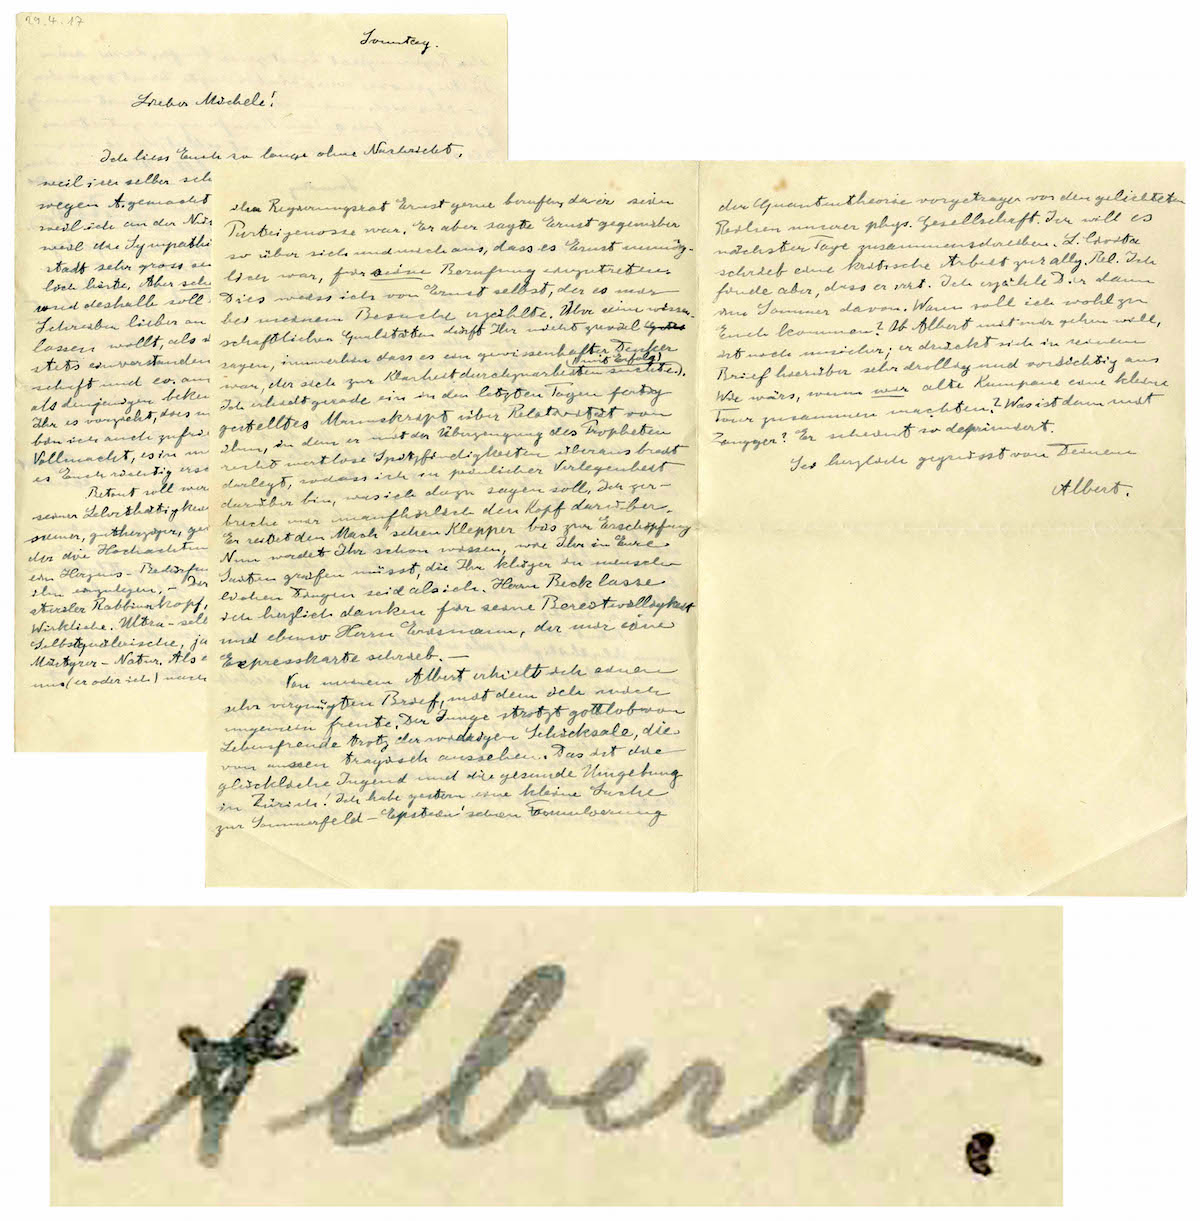 29.4.17
Sonntag.
Lieber Michele!
Ich liess Euch so lange ohne Nachricht,
weil ich selber
wegen A. gemacht
weil ich an der
weil die
stadt sehr gross
Aber
und deshalb soll
Schreiben lieber an
lassen wollt, als
stets einverstanden
schaft und
als denjenigen
Ihr es vorzieht, dass
ich auch
Vollmacht, es in
es Euch richtig
Betont soll
seiner Lehrthätigkeit
gutherziger,
der die Hochachtung
ein Herzens-Bedürfnis
ihn einzulegen. –
steriler Rabbinerkopf,
Wirkliche. Ultra-
Selbstquälerische,
Märtyrer-Natur. Als
uns (er oder ich) nach
den Regierungsrat Ernst gerne berufen, da er sein
Parteigenosse war. Er aber sagte Ernst gegenüber
so über sich und mich aus, dass es Ernst unmög-
lich war, für seine Berufung einzutreten.
Dies weiss ich von Ernst selbst, der es mir
bei meinem Besuche erzählte. Über seine wissen-
schaftlichen Qualitäten dürft Ihr nicht zuviel
sagen, immerhin dass es ein gewissenhafter Denker
war, der sich zur Klarheit durchzuarbeiten suchte (mit Erfolg).
Ich erhielt gerade ein in den letzten Tagen fertig
gestelltes Manuskript über Relativität von
ihm, in dem er mit der Überzeugung des Propheten
recht wertlose Spitzfindigkeiten überaus breit
darlegt, sodass ich in peinlicher Verlegenheit
darüber bin, was ich dazu sagen soll. Ich zer-
breche mir unaufhörlich den Kopf darüber.
Er reitet den Mach'schen Klepper bis zur Erschöpfung
Nun werdet Ihr schon wissen, wie Ihr in Eure
Saiten greifen müsst, die Ihr klüger in mensch-
lichen Dingen seid als ich. Herrn Beck lasse
ich herzlich danken für seine Bereitwilligkeit
und ebenso Herrn Erismann, der mir eine
Expresskarte schrieb. –
Von meinem Albert erhielt ich einen
sehr vergnügten Brief, mit dem ich mich
ungemein freute. Der Junge strotzt gottlob von
Lebensfreude trotz der widrigen Schicksale, die
von aussen tragisch aussehen. Das ist die
glückliche Jugend und die gesunde Umgebung
in Zürich! Ich habe gestern eine kleine Sache
zur Sommerfeld-Epstein'schen Formulierung
der Quantentheorie vorgetragen vor den gelichteten
Reihen unserer phys. Gesellschaft. Ich will es
nächster Tage zusammenschreiben. L. Civita
schrieb eine kritische Arbeit zur allg. Rel. Ich
finde aber, dass er irrt. Ich erzähle Dir dann
im Sommer davon. Wann soll ich wohl zu
Euch kommen? Ob Albert mit mir gehen will,
ist noch unsicher; er drückt sich in seinem
Brief hierüber sehr drollig und vorsichtig aus
Wie wärs, wenn wir alte Kumpane eine kleine
Tour zusammen machten? Was ist denn mit
Zangger? Er scheint so deprimiert.
Sei herzlich gegrüsst von Deinem
Albert.
Albert.